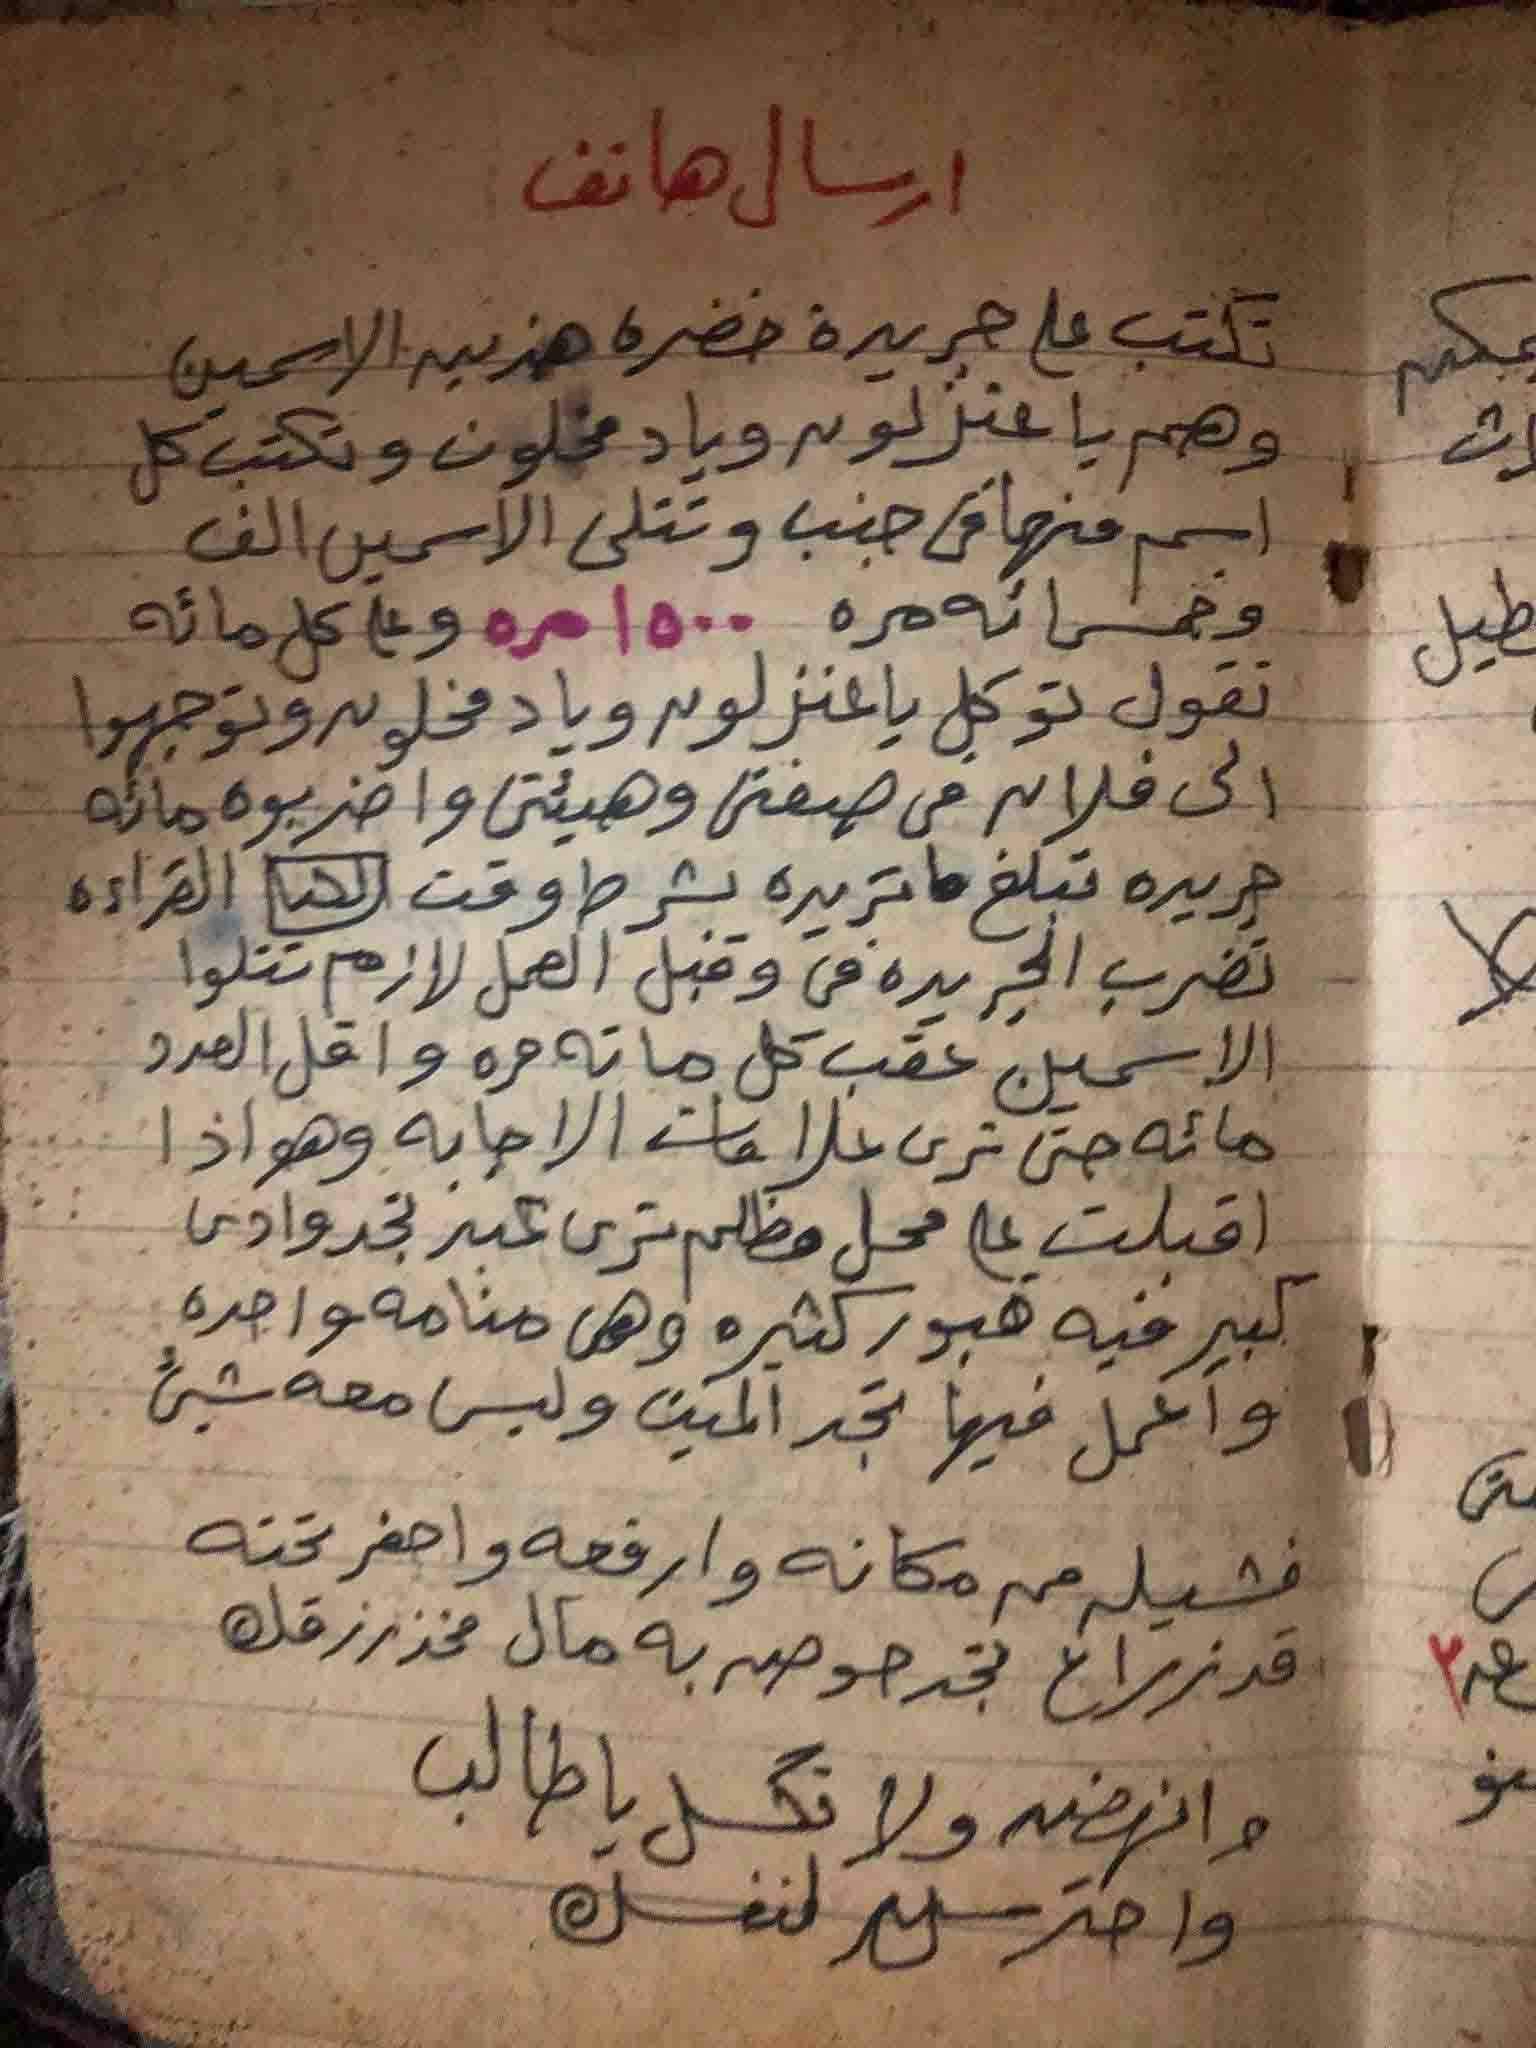 ارسال هاتف
تكتب على جريدة خضره هذين الاسمين
وهم يا عنزلون وياد مخلون وتكتب كل
اسم منها فى جنب وتتلى الاسمين الف
وخمسائه مره ١٥٠٠ مره وعلى كل مائه
تقول توكل يا عنزلون وياد مخلون وتوجهوا
الى فلان فى صفتى وهيئتى واضربوه مائه
جريده تبلغ ماتريده بشرط وقت القراءه
تضرب الجريده فى وقبل العمل لازم تتلوا
الاسمين عقب كل مائه مره واقل العدد
مائه حتى ترى علامات الاجابه وهو اذا
اقبلت على محل مظلم ترى تجد وادى
كبير فيه قبور كثيره وهى منامه واحده
واعمل فيها تجد الميت وليس معه شيئ
فشيله من مكانه وارفعه واحفر تحته
قد زراع تجد حوض به مال فخذ رزقك
وانهض ولا تكسل يا طالب
واحترس لنفسك
يمكن
طيل
لا
٢